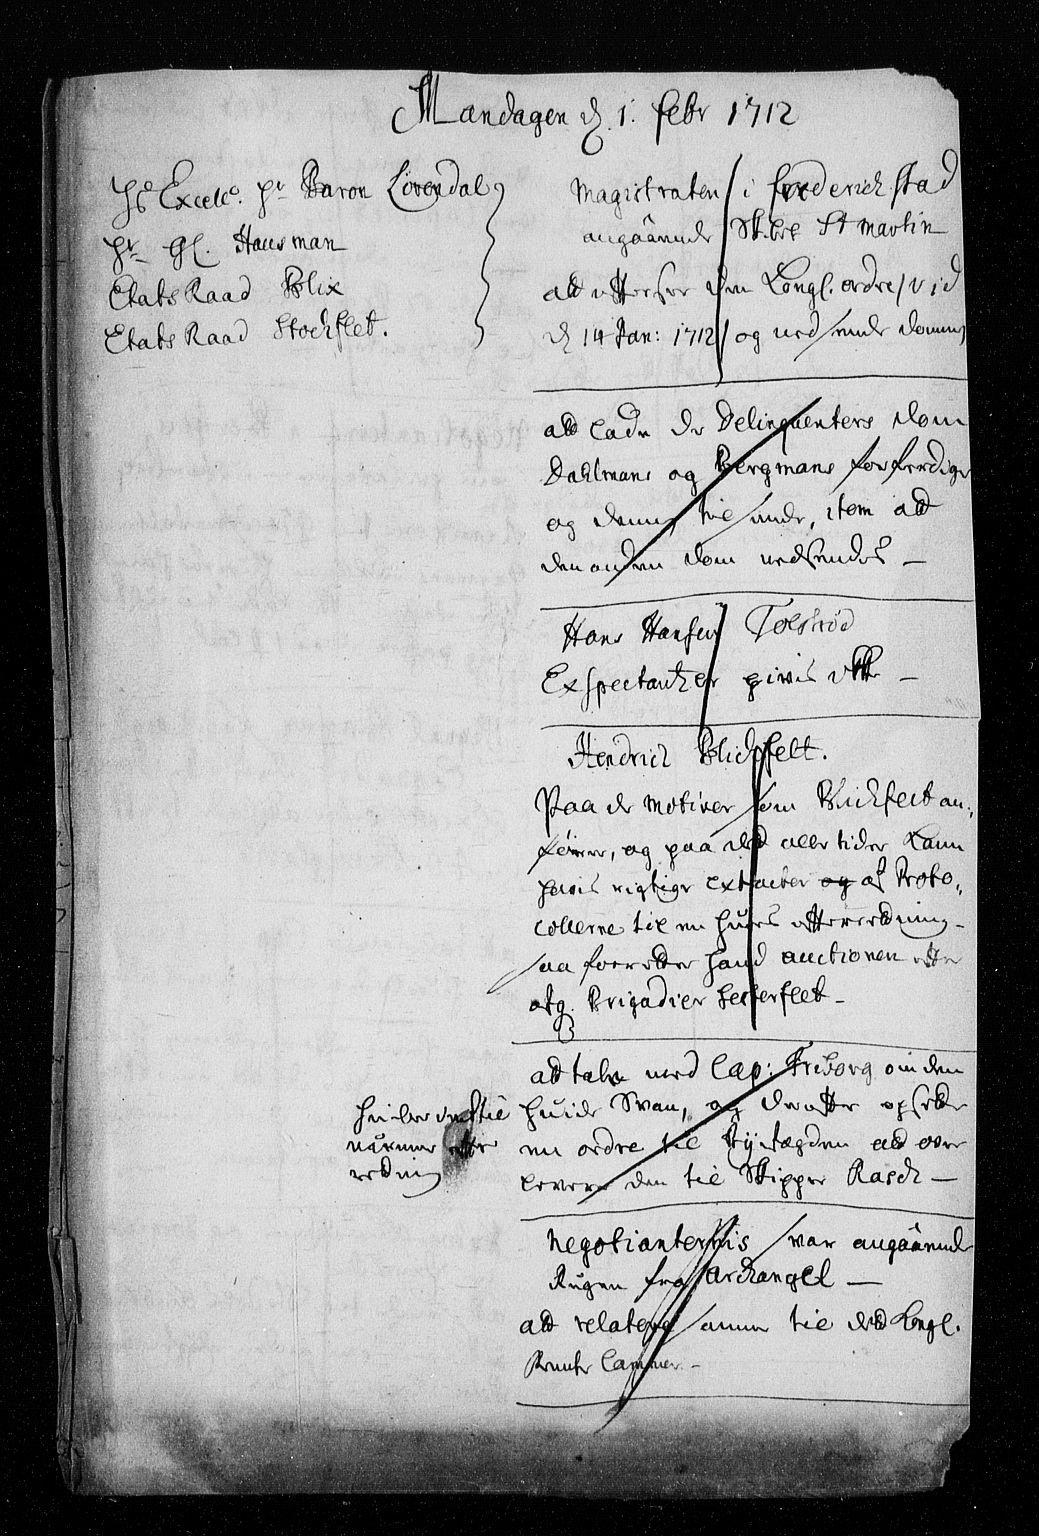 Mandagen d. 1. febr 1712
Hs Excelc. Hr Baron Lövendal
Hr Gl. Hausman
Etats Raad Blix
Etats Raad Stockflet.
Magistraten i frederichstad
angaaende Skibet St Martin
att efterser den Kongl. ordre / vid
d 14 Jan: 1712 / og ned sende dommen
att lade de Delinquenters dom
Dahlmans og Bergmans forferdige
og denne til sende, item att
den anden dom nedsendes —
Hans Hansen Tolsrød
Expectantzer givis icke —
Hendrich Blichfelt.
Paa de motiver som Blichfelt an-
fører, og paa det alle tider kann
hafvis rigtige extracter og af Proto-
collerne til en huers efterretning -
saa foeretter hand auctionen efter
afg. Brigadier Lesterflet -
att tale med Cap: Friborg om den
huide Svan, og derefter opsette
en ordre til Tÿtøgden att over
levere den til Skipper Rasch —
hviler til
nærmere efter
retning
Negotianternis svar angaaende
Rugen fra Archangel —
att relatere samme til det Kongl.
Rente Cammer -